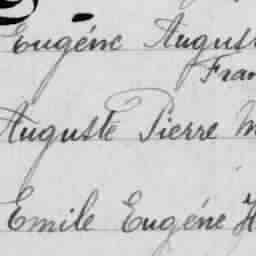 Eugéne August
Fran
Auguste Pierre M
Emile Eugéne H